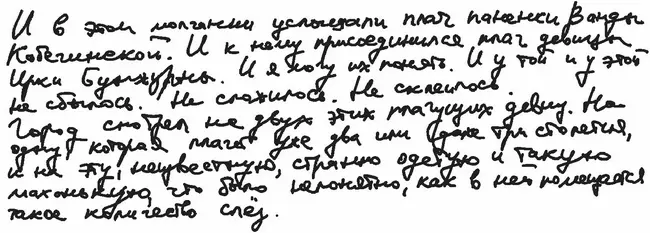 И в этом молчании услышали плач паненки Ванды
Кобечинской. И к нему присоединился плач девицы
Ирки Бунжурны. И я могу их понять. И у той и у этой
не сбылось. Не сложилось. Не склеилось.
Город смотрел на двух этих плачущих девиц. На
одну, которая плачет уже два или даже три столетия,
и на эту, неизвестную, странно одетую и такую
махонькую, что было непонятно, как в ней помещается
такое количество слёз.